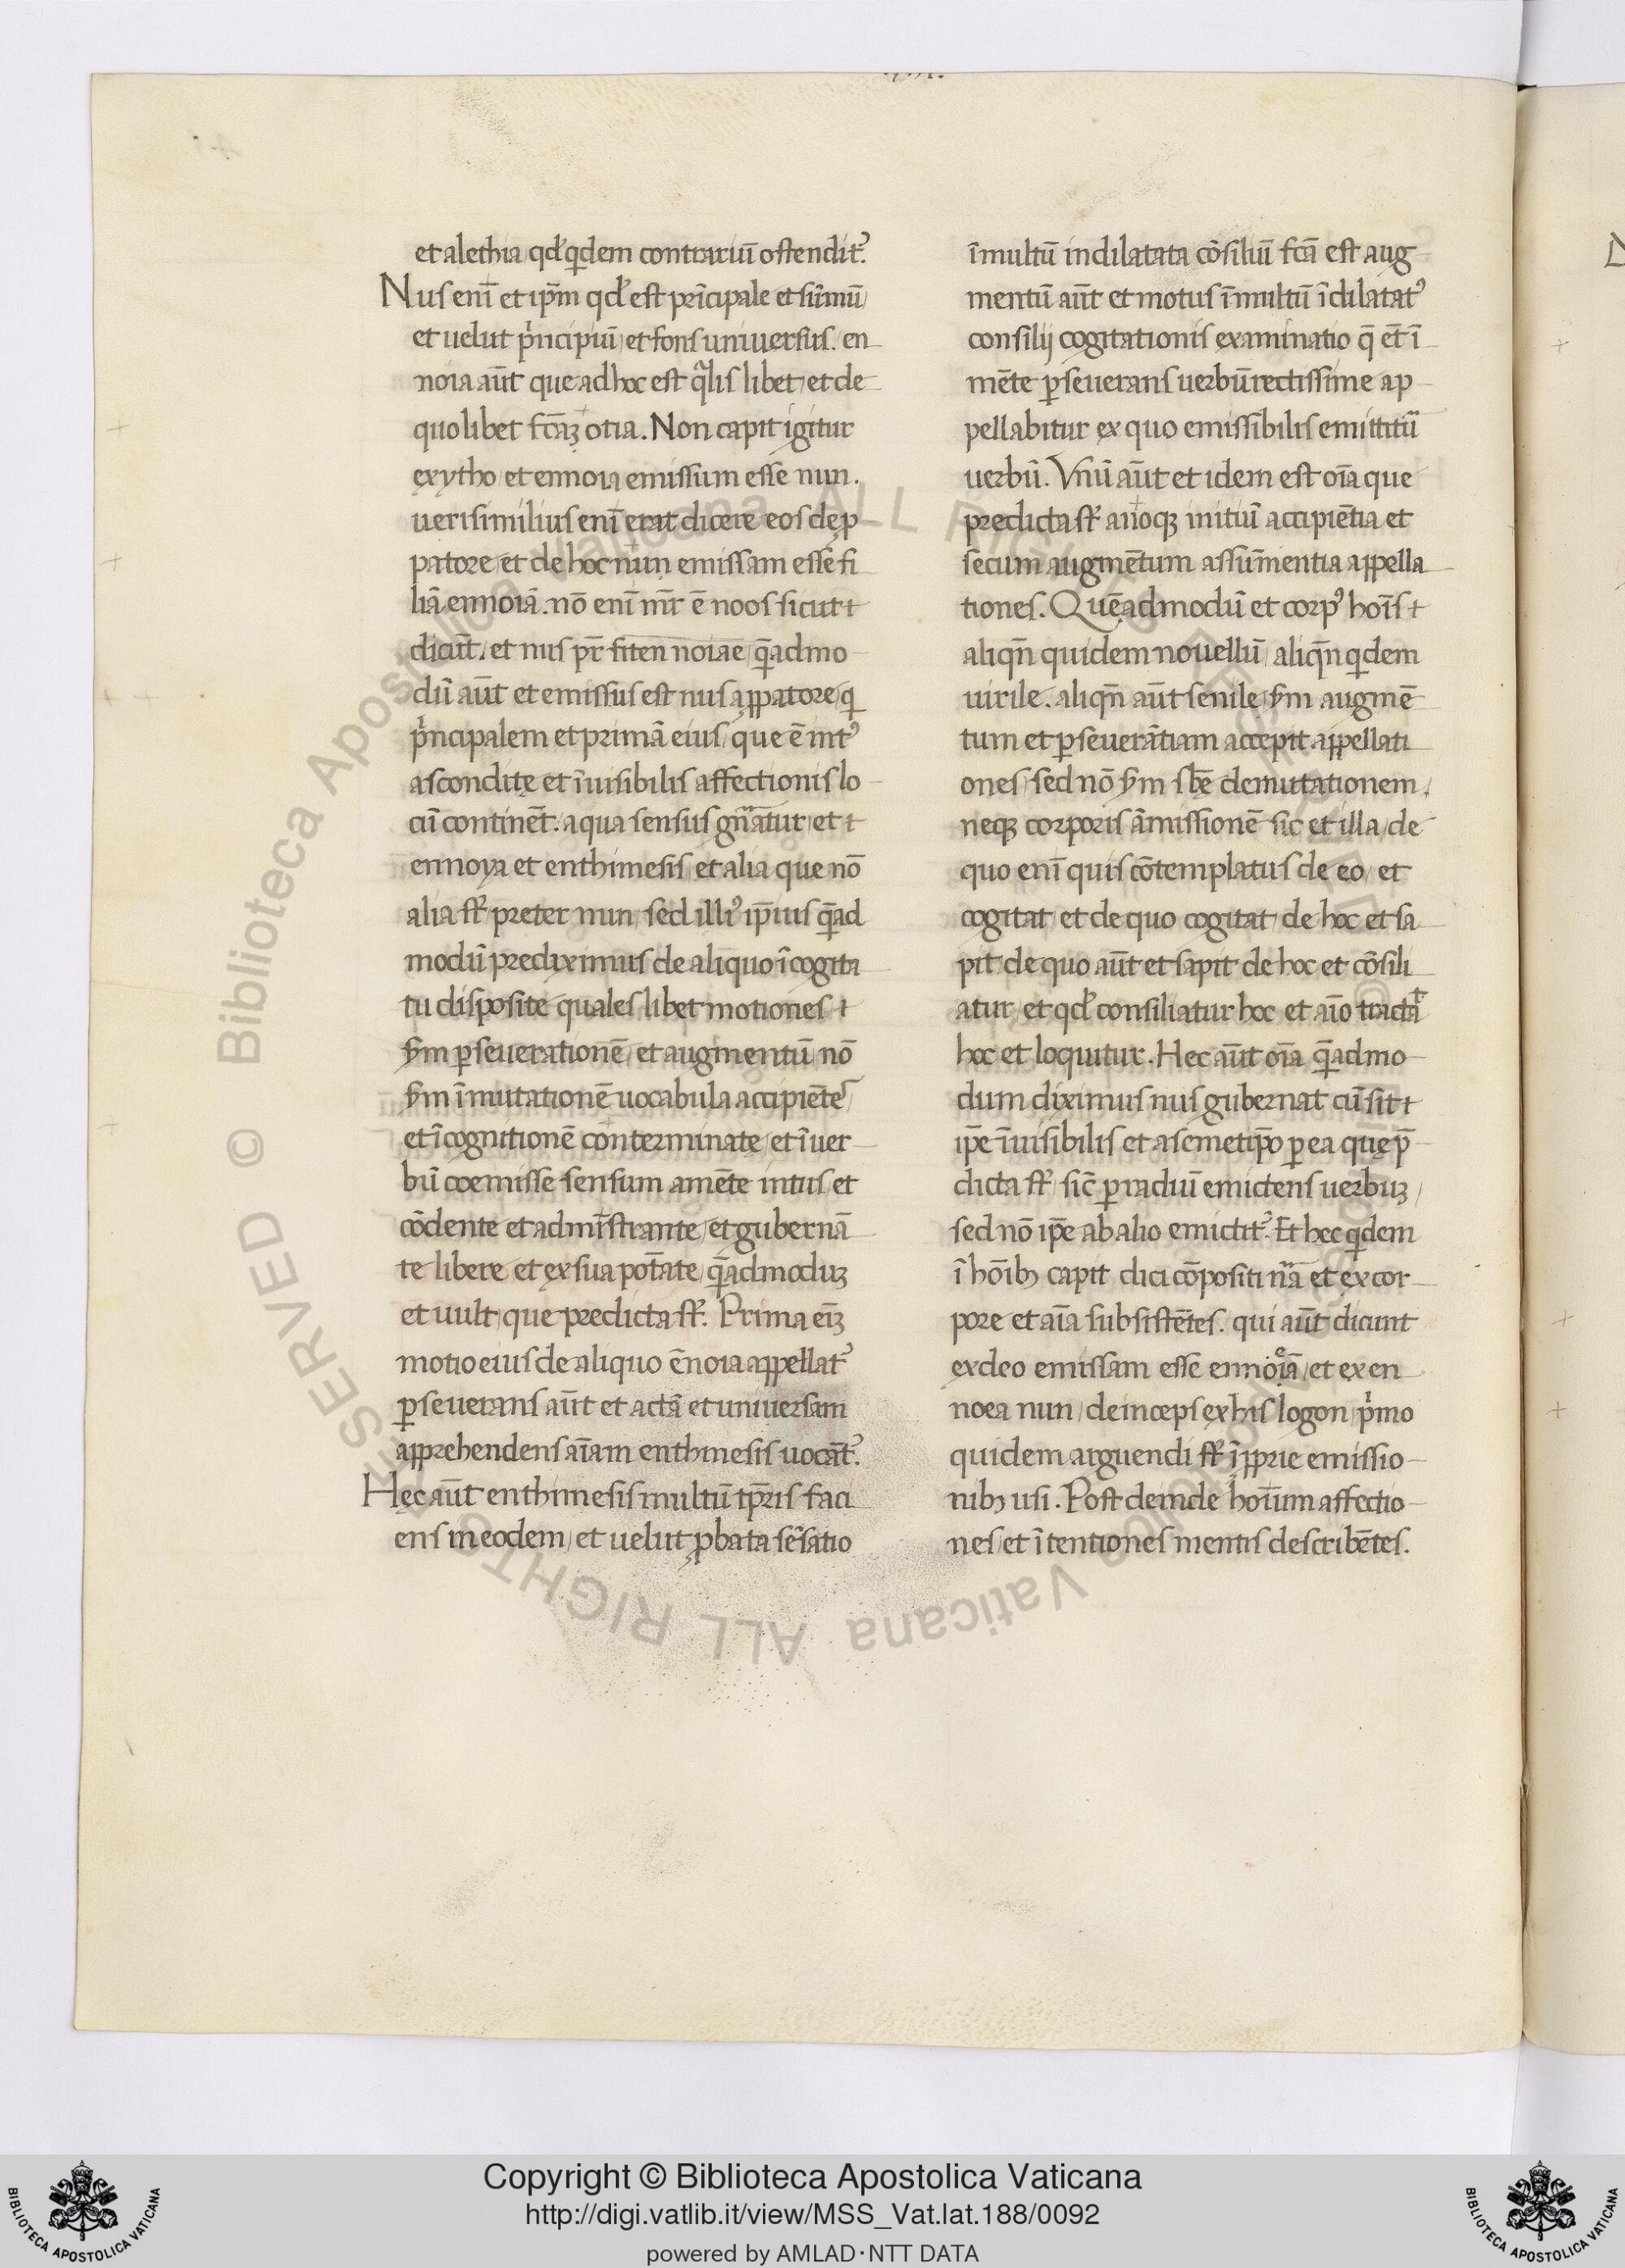 et alethia qđ qͥdem contrariū ostendit᷒.
Nus eni᷒̄ et ip̄m qđ est prīcipale et sūmū
et uelut pͥncipiū et fons uniuersus. en
noia aūt que ad hoc est qͣlis libet et de
quolibet fc̄aʒ otia. Non capit igitur
ex ytho et ennoia emissum esse nun.
uerisimilius enī erat dicere eos de ꝓ
patore et de hoc nun emissam esse fi
liā ennoiā. nō enī mr̄ ē noos sicut
dicūt. et nus pr̄ fit ennoiae q̄admo
dū aūt et emissus est nus a ꝓpatore q
pͥncipalem et primā eius que ē int᷒
ascondite et īuisibilis affectionis lo
cū continēt. a qua sensus gn̄atur et
ennoya et enthimesis et alia que nō
alia st̄ preter nun sed illi᷒ ip̄ius q̄ad
modū prediximus de aliquo ī cogita
tu disposite quales libet motiones
ẜm ꝑseuerationē et augmentū nō
ẜm īmutationē uocabula accipiētes
et ī cognitionē conterminate et ī uer
bū coemisse sensum a mēte intus et
cōdente et adminīstrante et gubernā
te libere et ex sua potāte q̄admoduʒ
et uult que predicta st̄. Prima eiʒ̄
motio eius de aliquo ēnoia appellat᷒
ꝑseuerans aūt et actā et uniuersam
apprehendens aīam enthimesis uocāt᷒.
Hęc aūt enthimesis multū tꝑ̄is faci
ens in eodem et uelut ꝓbata sēsatio
ī multū in dilatata cōsiliū fc̄a est aug
mentū aūt et motus ī multū ī dilatat᷒
consilij cogitationis examinatio q̄ et̄ ī
mēte ꝑseuerans uerbū rectissime ap
pellabitur ex quo emissibilis emittitͣ
uerbū. Vnū aūt et idem est oīa que
predicta st̄ a noqʒ initiū accipiētia et
secum augmētum assūmentia appella
tiones. Quēadmodū et corp᷒ hoīs
aliqn̄ quidem nouellū aliqn̄ qͥdem
uirile. aliqn̄ aūt senile ẜm augmē
tum et ꝑseuerātiam accepit appellati
ones sed nō ẜm sbē demutationem.
neqʒ corporis āmissionē sic et illa de
quo enī quis cōtemplatus de eo et
cogitat et de quo cogitat de hoc et sa
pit de quo aūt et sapit de hoc et cōsili
atur et qđ consiliatur hoc et aīo tractat
hoc et loquitur. Hec aūt oīa q̄admo
dum diximus nus gubernat cū sit
ip̄e īuisibilis et a semetip̄o ꝑ ea que p̄
dicta st̄ sic̄ ꝑ radiū emictens uerbuʒ
sed nō ip̄e ab alio emictit᷒. Et hec qͥdem
ī hoībʒ capit dici cōpositi nͣā et ex cor
pore et aīa subsistētes. qui aūt dicunt
ex deo emissam esse ennoiā et ex en
noea nun deinceps ex his logon pͥmo
quidem arguendi st̄ īꝓprie emissio
nibʒ usi. Post deinde hoīum affectio
nes et ītentiones mentis describētes.
Copyright © Biblioteca Apostolica Vaticana
http://digi.vatlib.it/view/MSS_Vat.lat.188/0092
powered by AMLAD·NTT DATA